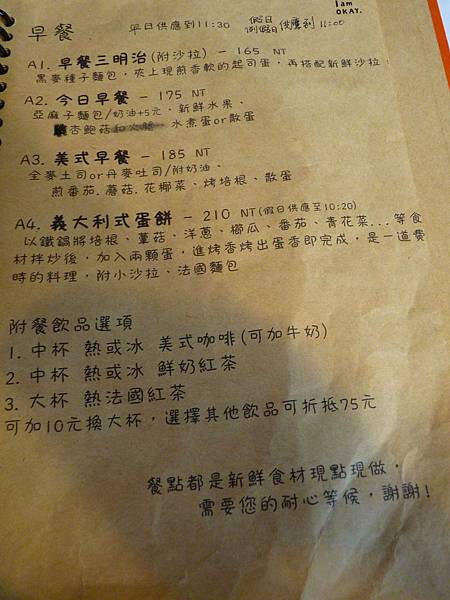 I am
OKAY.
早餐 平日供應到11:30 假日 例假日 供應到 11:00
A1. 早餐三明治(附沙拉) - 165 NT
黑麥種子麵包,夾上現煎香軟的起司蛋,再搭配新鮮沙拉!
A2. 今日早餐 - 175 NT
亞麻子麵包/奶油+5元、新鮮水果、
杏鮑菇 水煮蛋or散蛋
A3. 美式早餐 - 185 NT
全麥土司or丹麥吐司/附奶油、
煎番茄.蘑菇.花椰菜、烤培根、散蛋
A4. 義大利式蛋餅 - 210 NT(假日供應至10:20)
以鐵鍋將培根、蕈菇、洋蔥、櫛瓜、番茄、青花菜...等食
材拌炒後,加入兩顆蛋,進烤香烤出蛋香即完成,是一道費
時的料理,附小沙拉、法國麵包
附餐飲品選項
1. 中杯 熱或冰 美式咖啡(可加牛奶)
2. 中杯 熱或冰 鮮奶紅茶
3. 大杯 熱法國紅茶
可加10元換大杯,選擇其他飲品可折抵75元
餐點都是新鮮食材現點現做,
需要您的耐心等候,謝謝!